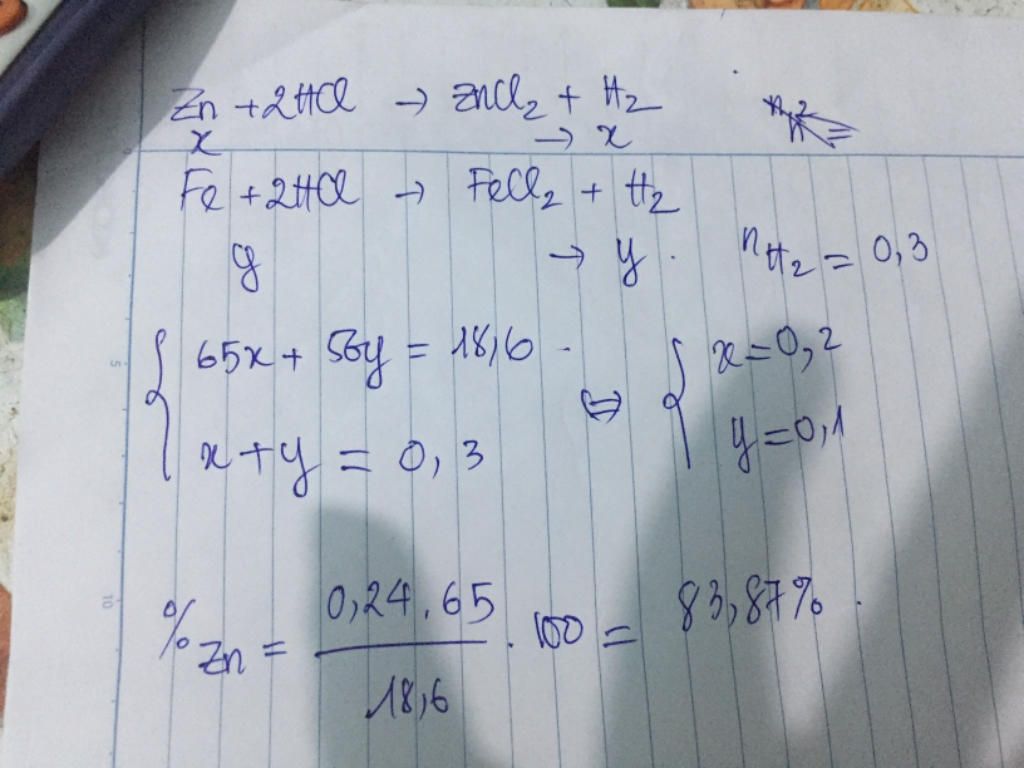 Zn + 2HCl → ZnCl₂ + H₂
x → x
Fe + 2HCl → FeCl₂ + H₂
y → y . nH₂ = 0,3
{ 65x + 56y = 18,6
x + y = 0,3
⇔ { x = 0,2
y = 0,1
%Zn = 0,24 . 65 / 18,6 . 100 = 83,87% .
5
10